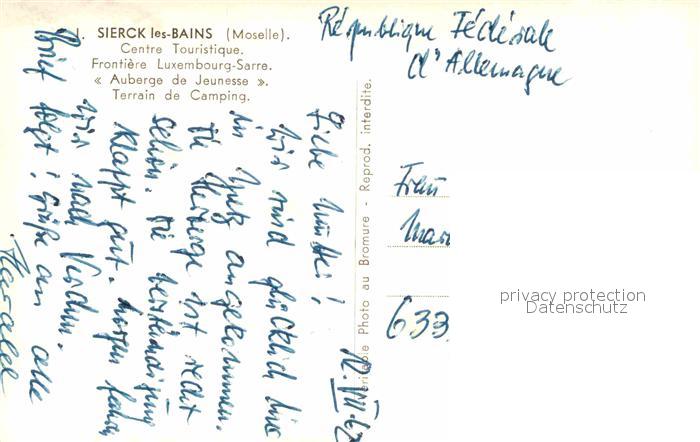 1. SIERCK les-BAINS (Moselle).
Centre Touristique.
Frontière Luxembourg-Sarre.
« Auberge de Jeunesse ».
Terrain de Camping.
République Fédérale
d'Allemagne
Véritable Photo au Bromure - Reprod. interdite.
Frau
Mar
633
privacy protection
Datenschutz
12. VIII. 62
Liebe Mutter!
Wir sind glücklich hier
in Yutz angekommen.
Die Herberge ist recht
schön. Die Verständigung
klappt gut. Morgen fahren
wir nach Verdun.
Brief folgt! Grüße an alle
Harald